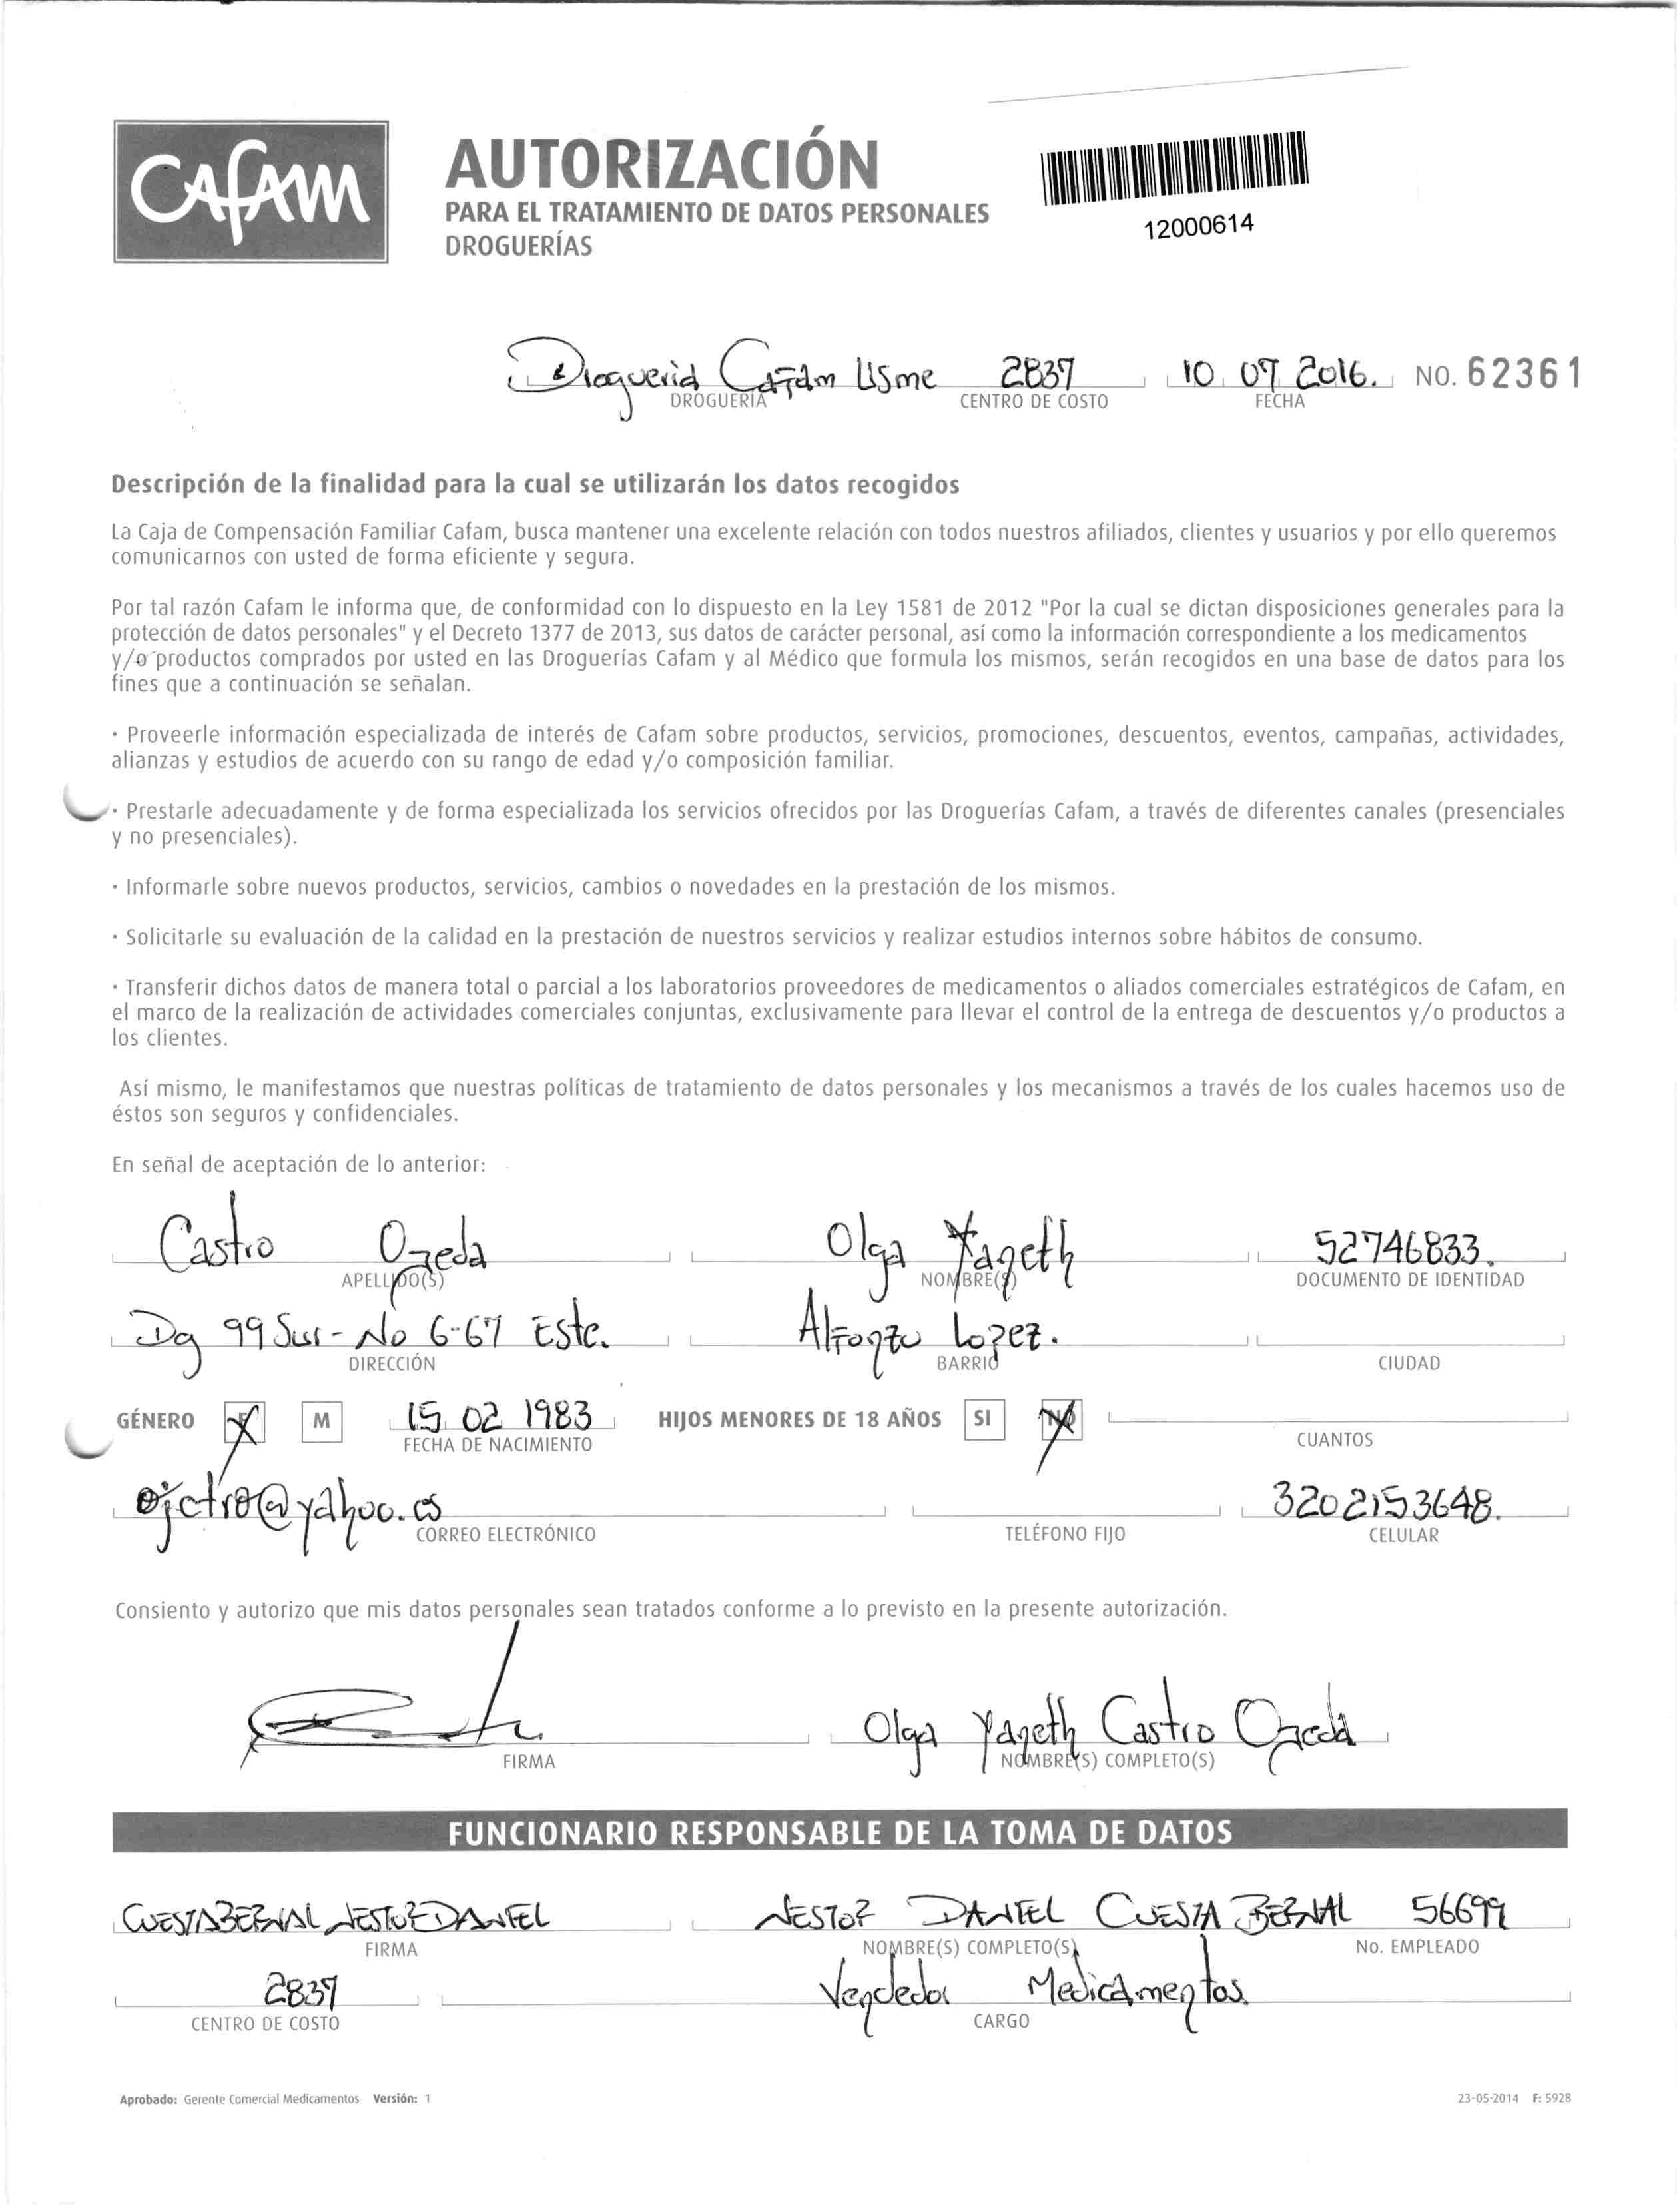 CAFAM
AUTORIZACIÓN
PARA EL TRATAMIENTO DE DATOS PERSONALES
DROGUERÍAS
12000614
Drogueria Cafam Usme 2837 10 07 2016. NO. 62361
DROGUERÍA CENTRO DE COSTO FECHA
Descripción de la finalidad para la cual se utilizarán los datos recogidos
La Caja de Compensación Familiar Cafam, busca mantener una excelente relación con todos nuestros afiliados, clientes y usuarios y por ello queremos
comunicarnos con usted de forma eficiente y segura.
Por tal razón Cafam le informa que, de conformidad con lo dispuesto en la Ley 1581 de 2012 "Por la cual se dictan disposiciones generales para la
protección de datos personales" y el Decreto 1377 de 2013, sus datos de carácter personal, así como la información correspondiente a los medicamentos
y/o productos comprados por usted en las Droguerías Cafam y al Médico que formula los mismos, serán recogidos en una base de datos para los
fines que a continuación se señalan.
· Proveerle información especializada de interés de Cafam sobre productos, servicios, promociones, descuentos, eventos, campañas, actividades,
alianzas y estudios de acuerdo con su rango de edad y/o composición familiar.
· Prestarle adecuadamente y de forma especializada los servicios ofrecidos por las Droguerías Cafam, a través de diferentes canales (presenciales
y no presenciales).
· Informarle sobre nuevos productos, servicios, cambios o novedades en la prestación de los mismos.
· Solicitarle su evaluación de la calidad en la prestación de nuestros servicios y realizar estudios internos sobre hábitos de consumo.
· Transferir dichos datos de manera total o parcial a los laboratorios proveedores de medicamentos o aliados comerciales estratégicos de Cafam, en
el marco de la realización de actividades comerciales conjuntas, exclusivamente para llevar el control de la entrega de descuentos y/o productos a
los clientes.
Así mismo, le manifestamos que nuestras políticas de tratamiento de datos personales y los mecanismos a través de los cuales hacemos uso de
éstos son seguros y confidenciales.
En señal de aceptación de lo anterior:
Castro Ojeda Olga Yaneth 52746833.
APELLIDO(S) NOMBRE(S) DOCUMENTO DE IDENTIDAD
Dg 99 Sur - No 6-67 Este. Alfonzo Lopez.
DIRECCIÓN BARRIO CIUDAD
GÉNERO M 15 02 1983 HIJOS MENORES DE 18 AÑOS SI NO
FECHA DE NACIMIENTO CUANTOS
ojctro@yahoo.es 3202153648.
CORREO ELECTRÓNICO TELÉFONO FIJO CELULAR
Consiento y autorizo que mis datos personales sean tratados conforme a lo previsto en la presente autorización.
Olga Yaneth Castro Ojeda
FIRMA NOMBRE(S) COMPLETO(S)
FUNCIONARIO RESPONSABLE DE LA TOMA DE DATOS
CUESTA BERNAL NESTOR DANIEL NESTOR DANIEL CUESTA BERNAL 56699
FIRMA NOMBRE(S) COMPLETO(S) No. EMPLEADO
2837 Vendedor Medicamentos
CENTRO DE COSTO CARGO
Aprobado: Gerente Comercial Medicamentos Versión: 1 23-05-2014 F: 5928